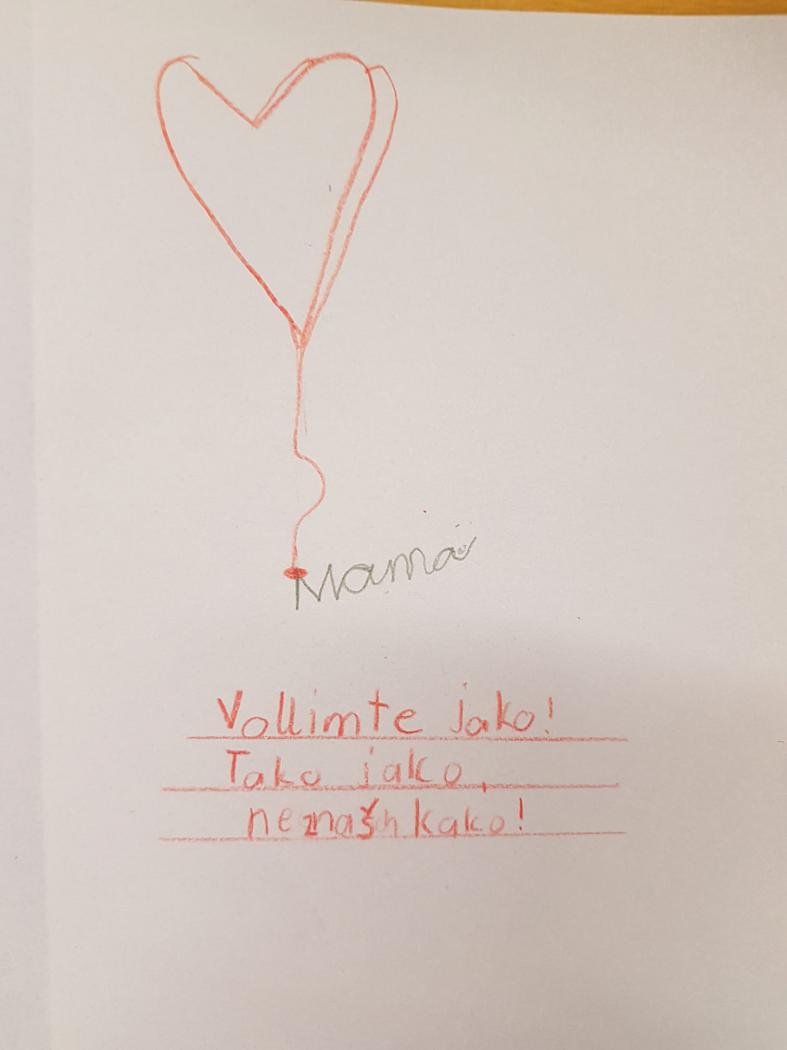 Mama
Vollimte jako!
Tako jako,
neznaš kako!